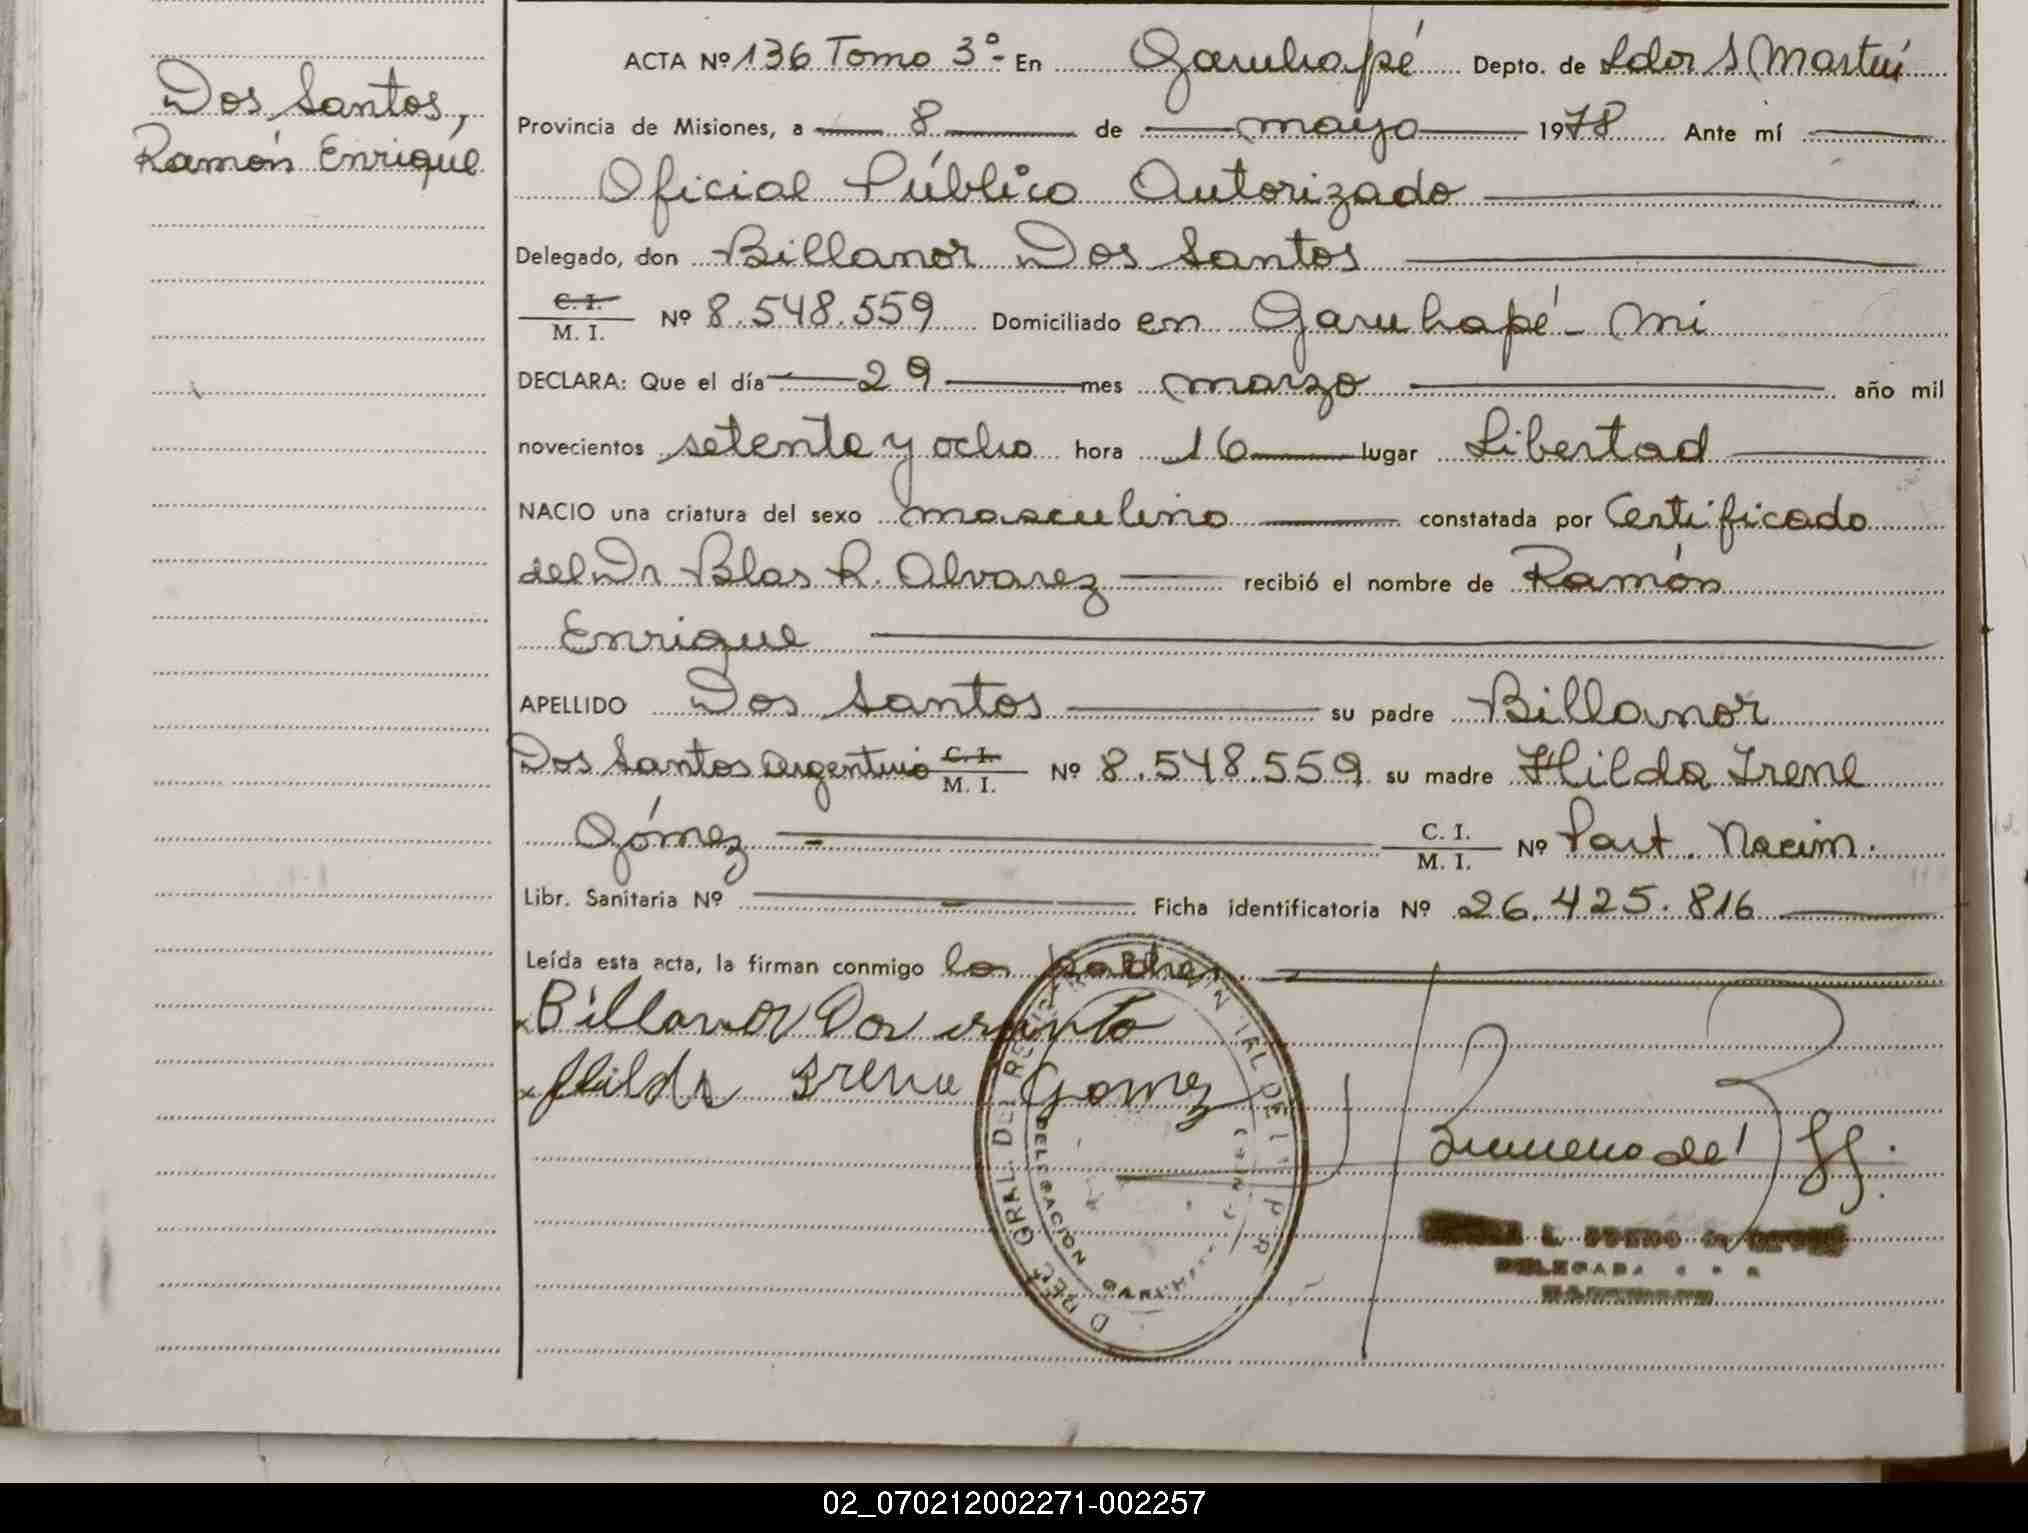 Dos Santos,
Ramón Enrique
ACTA Nº 136 Tomo 3º - En Garuhapé Depto. de Ldor S Martín
Provincia de Misiones, a 8 de mayo 1978 Ante mí
Oficial Público Autorizado
Delegado, don Billanor Dos Santos
C. I. / M. I. Nº 8.548.559 Domiciliado en Garuhapé - Mi
DECLARA: Que el día 29 mes marzo año mil
novecientos setenta y ocho hora 16 lugar Libertad
NACIO una criatura del sexo masculino constatada por Certificado
del Dr Blas R. Alvarez recibió el nombre de Ramón
Enrique
APELLIDO Dos Santos su padre Billanor
Dos Santos argentino C. I. / M. I. Nº 8.548.559 su madre Hilda Irene
Gómez - C. I. / M. I. Nº Part. Nacim.
Libr. Sanitaria Nº - Ficha identificatoria Nº 26.425.816
Leída esta acta, la firman conmigo los padres.
x Billanor Dos
x Hilda Irene Gomez
DELEGACION
DELEGADA
02_070212002271-002257